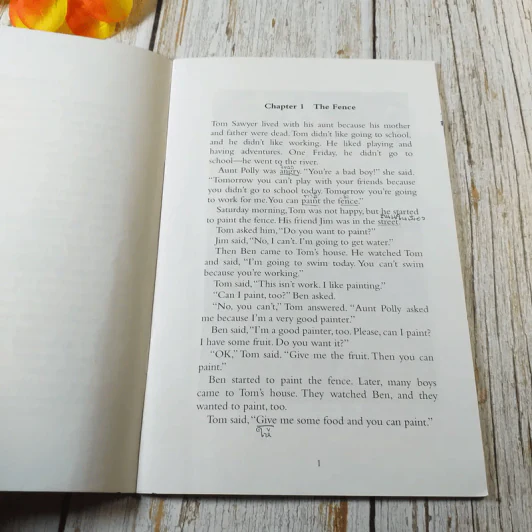 Chapter 1 The Fence
Tom Sawyer lived with his aunt because his mother
and father were dead. Tom didn't like going to school,
and he didn't like working. He liked playing and
having adventures. One Friday, he didn't go to
school—he went to the river.
Aunt Polly was angry. "You're a bad boy!" she said.
"Tomorrow you can't play with your friends because
you didn't go to school today. Tomorrow you're going
to work for me. You can paint the fence."
Saturday morning, Tom was not happy, but he started
to paint the fence. His friend Jim was in the street.
Tom asked him, "Do you want to paint?"
Jim said, "No, I can't. I'm going to get water."
Then Ben came to Tom's house. He watched Tom
and said, "I'm going to swim today. You can't swim
because you're working."
Tom said, "This isn't work. I like painting."
"Can I paint, too?" Ben asked.
"No, you can't," Tom answered. "Aunt Polly asked
me because I'm a very good painter."
Ben said, "I'm a good painter, too. Please, can I paint?
I have some fruit. Do you want it?"
"OK," Tom said. "Give me the fruit. Then you can
paint."
Ben started to paint the fence. Later, many boys
came to Tom's house. They watched Ben, and they
wanted to paint, too.
Tom said, "Give me some food and you can paint."
1